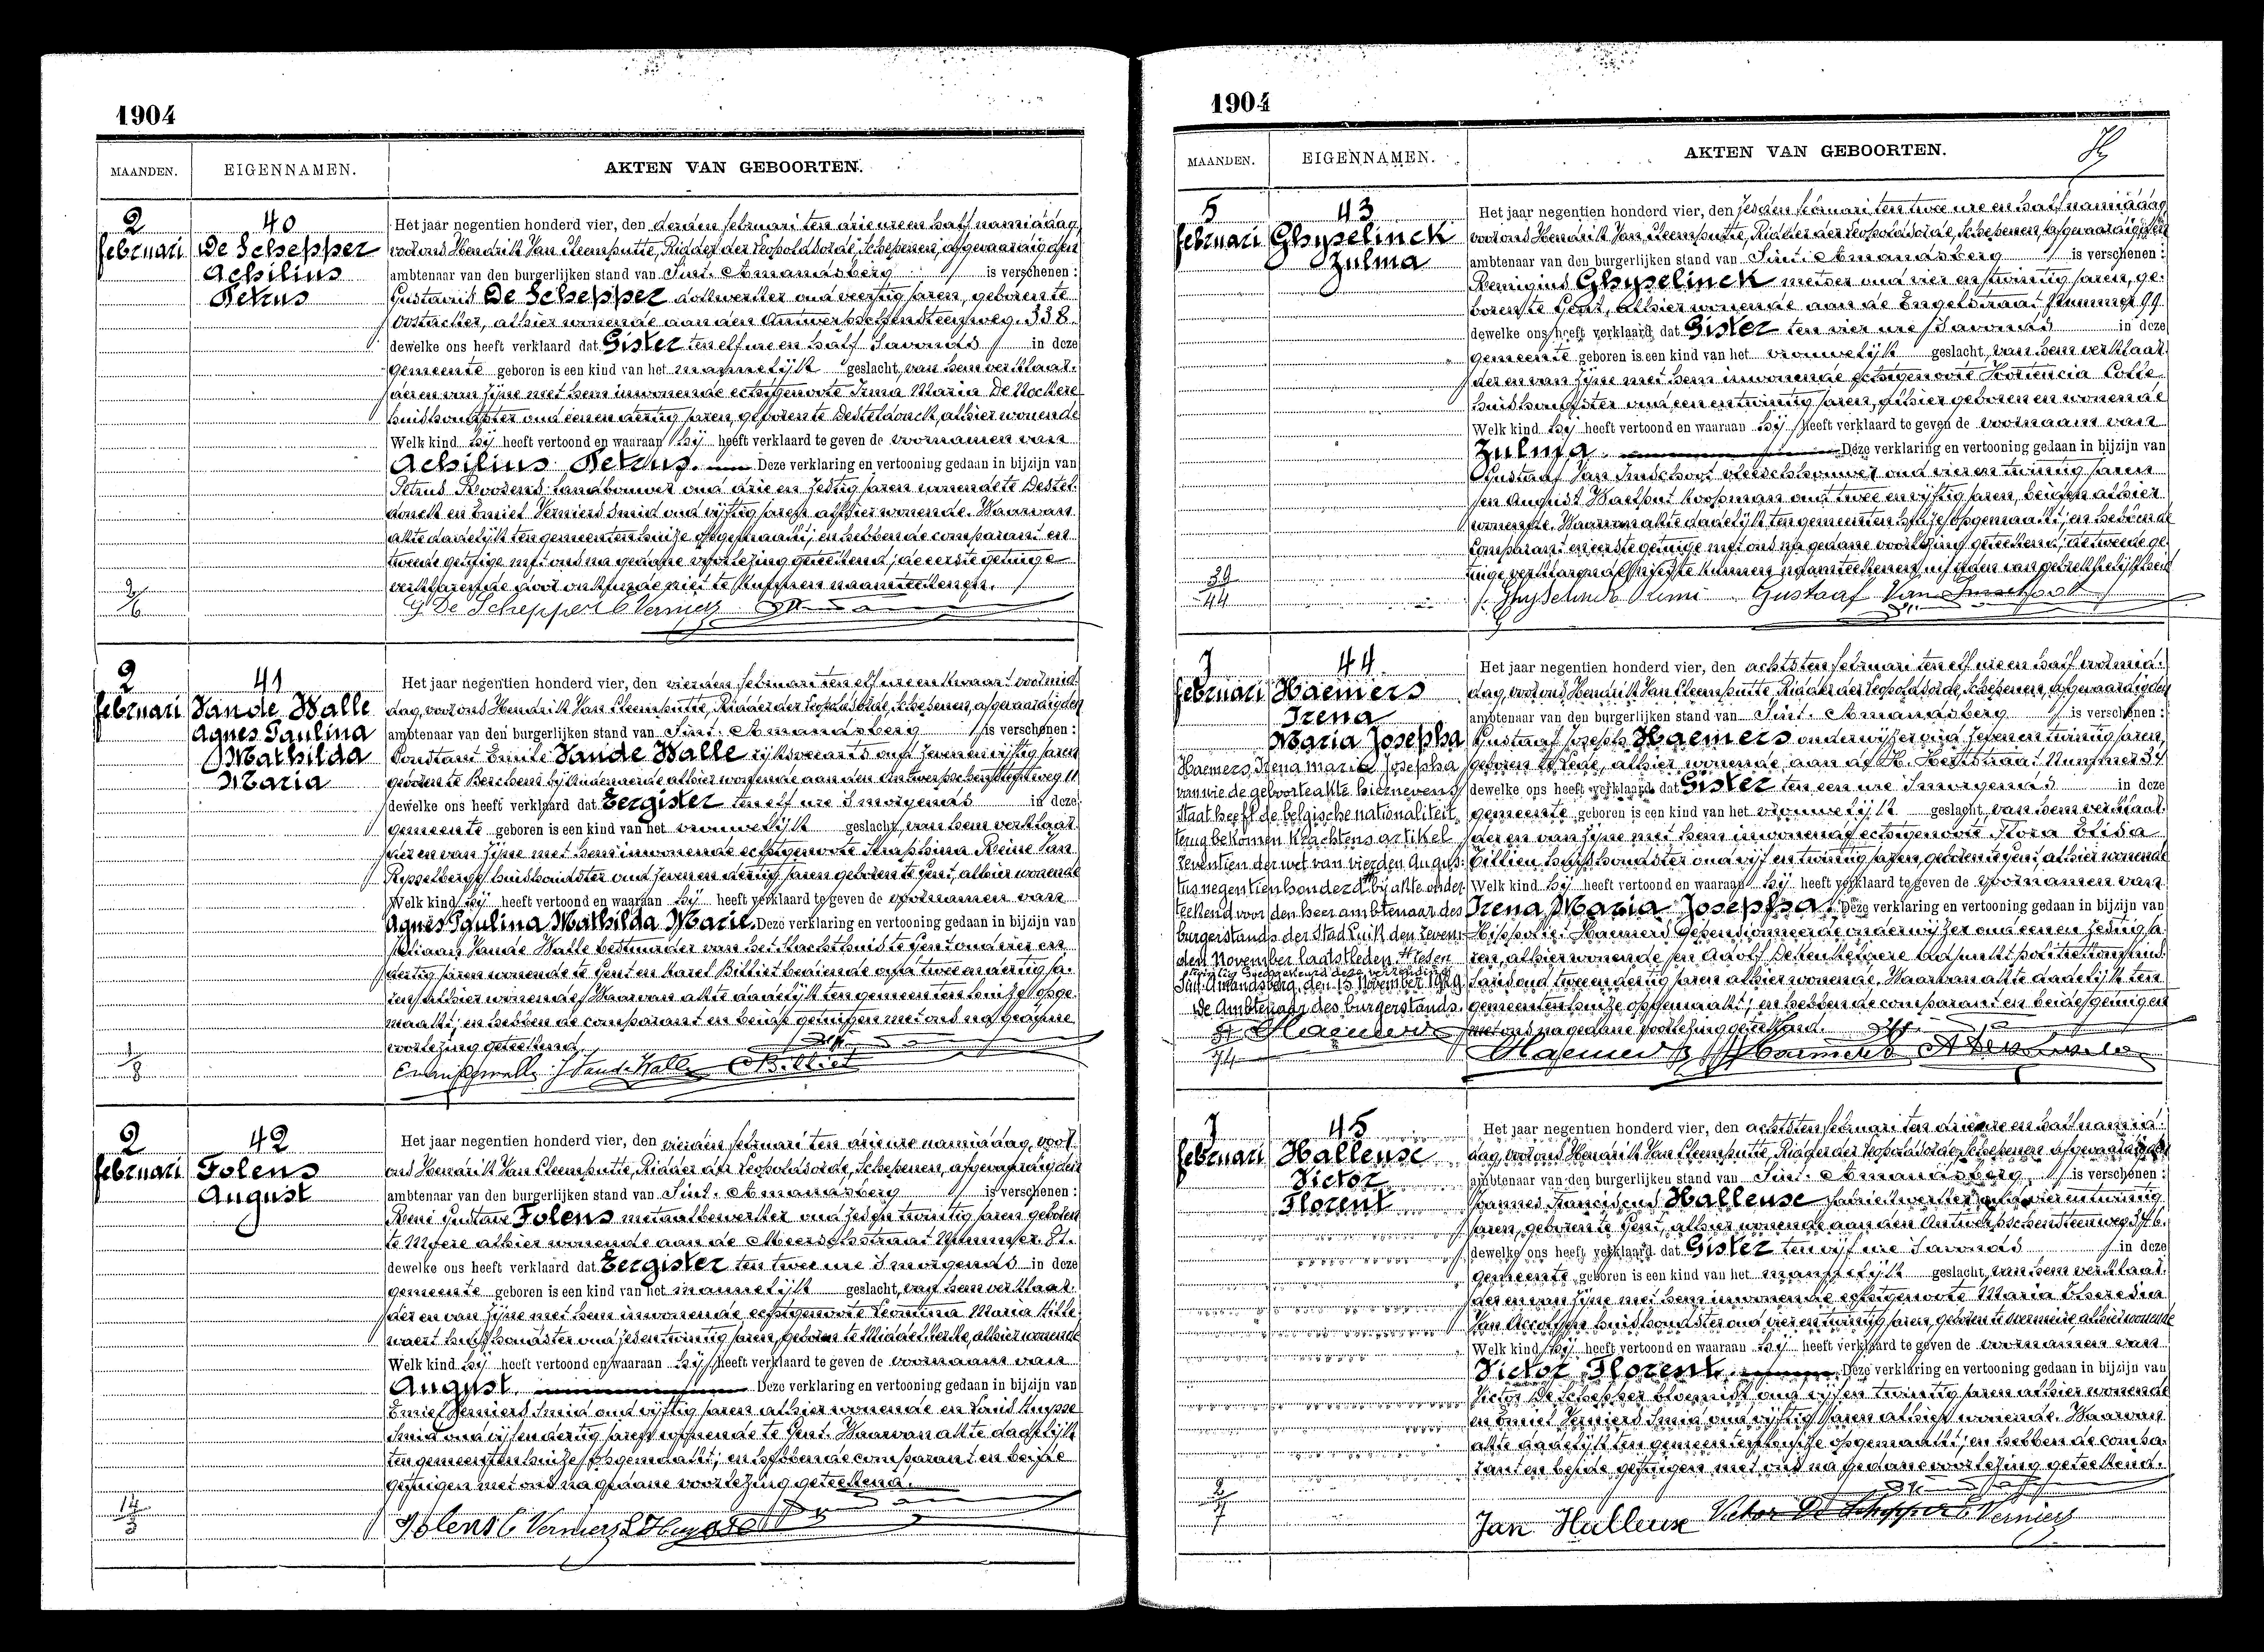 1904
MAANDEN. EIGENNAMEN. AKTEN VAN GEBOORTEN.
2 februari
40
De Schepper
Achilius
Petrus
Het jaar negentien honderd vier, den derden februari ten drie ure en half namiddag
voor ons Hendrik Van Cleemputte, Ridder der Leopoldsorde, Schepenen, afgevaardigden
ambtenaar van den burgerlijken stand van Sint-Amandsberg is verschenen:
Gustavus De Schepper dokwerker oud veertig jaren, geboren te
Oostacker, alhier wonende aan den Antwerpschensteenweg. 338.
dewelke ons heeft verklaard dat Gister ten elf ure en half s'avonds in deze
gemeente geboren is een kind van het mannelijk geslacht, van hem verklaar-
der en van zijne met hem inwonende echtgenoote Irma Maria De Nockere
huishoudster oud een en dertig jaren, geboren te Desteldonck, alhier wonende
Welk kind hij heeft vertoond en waaraan hij heeft verklaard te geven de voornamen van
Achilius Petrus. Deze verklaring en vertooning gedaan in bijzijn van
Petrus Roosens landbouwer oud drie en zestig jaren wonende te Destel-
donck en Emiel Verniers smid oud vijftig jaren alhier wonende. Waarvan
akte dadelijk ten gemeentenhuize opgemaakt; en hebben de comparant en
tweede getuige met ons na gedane voorlezing geteekend; de eerste getuige
verklarende door onkunde niet te kunnen naamteekenen.
G. De Schepper E Verniers
2 februari
41
Vande Walle
Agnes Paulina
Mathilda
Maria
Het jaar negentien honderd vier, den vierden februari ten elf ure en kwaart voormid-
dag, voor ons Hendrik Van Cleemputte, Ridder der Leopoldsorde, Schepenen, afgevaardigden
ambtenaar van den burgerlijken stand van Sint-Amandsberg is verschenen:
Constant Emile Vande Walle rijksveearts oud zeven en vijftig jaren
geboren te Berchem bij Audenaerde alhier wonende aan den Antwerpschensteenweg 11
dewelke ons heeft verklaard dat Eergister ten elf ure s'morgends in deze
gemeente geboren is een kind van het vrouwelijk geslacht, van hem verklaar-
der en van zijne met hem inwonende echtgenoote Seraphina Reine Van
Rysselberge huishoudster oud zeven en dertig jaren geboren te Gent, alhier wonende
Welk kind hij heeft vertoond en waaraan hij heeft verklaard te geven de voornamen van
Agnes Paulina Mathilda Marie. Deze verklaring en vertooning gedaan in bijzijn van
Vande Walle bestuurder van het slachthuis te Gent oud vier en
dertig jaren wonende te Gent en Karel Billiet bediende oud twee en dertig ja-
ren alhier wonende. Waarvan akte dadelijk ten gemeentenhuize opge-
maakt; en hebben de comparant en beide getuigen met ons na gedane
voorlezing geteekend.
J Vande Walle C Billiet
2 februari
42
Folens
August
Het jaar negentien honderd vier, den vierden februari ten drie ure namiddag, voor
ons Hendrik Van Cleemputte, Ridder der Leopoldsorde, Schepenen, afgevaardigden
ambtenaar van den burgerlijken stand van Sint-Amandsberg is verschenen:
René Gustave Folens metaalbewerker oud zes en twintig jaren geboren
te Moere alhier wonende aan de Meerschstraat Nummer 81.
dewelke ons heeft verklaard dat Eergister ten twee ure s'morgends in deze
gemeente geboren is een kind van het mannelijk geslacht, van hem verklaar-
der en van zijne met hem inwonende echtgenoote Leontina Maria Hille-
waert huishoudster oud zes en twintig jaren, geboren te Middelkerke, alhier wonende
Welk kind hij heeft vertoond en waaraan hij heeft verklaard te geven de voornaam van
August. Deze verklaring en vertooning gedaan in bijzijn van
Emiel Verniers smid oud vijftig jaren alhier wonende en Louis Huysse
smid oud vijf en dertig jaren wonende te Gent. Waarvan akte dadelijk
ten gemeentenhuize opgemaakt; en hebben de comparant en beide
getuigen met ons na gedane voorlezing geteekend.
Folens E Verniers L Huysse
1904
MAANDEN. EIGENNAMEN. AKTEN VAN GEBOORTEN.
5 februari
43
Ghyselinck
Zulma
Het jaar negentien honderd vier, den zesden februari ten twee ure en half namiddag
voor ons Hendrik Van Cleemputte, Ridder der Leopoldsorde, Schepenen, afgevaardigden
ambtenaar van den burgerlijken stand van Sint-Amandsberg is verschenen:
Remigius Ghyselinck metser oud vier en twintig jaren, ge-
boren te Gent, alhier wonende aan de Engelstraat Nummer 99
dewelke ons heeft verklaard dat Gister ten vier ure s'avonds in deze
gemeente geboren is een kind van het vrouwelijk geslacht, van hem verklaar-
der en van zijne met hem inwonende echtgenoote Hortencia Colle
huishoudster oud een en twintig jaren, alhier geboren en wonende
Welk kind hij heeft vertoond en waaraan hij heeft verklaard te geven de voornaam van
Zulma. Deze verklaring en vertooning gedaan in bijzijn van
Gustaaf Van Imschoot vleeschhouwer oud vier en twintig jaren
en August Waelput koopman oud twee en vijftig jaren, beiden alhier
wonende. Waarvan akte dadelijk ten gemeentenhuize opgemaakt; en hebben de
comparant en eerste getuige met ons na gedane voorlezing geteekend; de tweede ge-
tuige verklarende niet te kunnen naamteekenen uit reden van gebrekkelijkheid
Ghyselinck Remi Gustaaf Van Imschoot
39
44
7 februari
44
Haemers
Irena
Maria Josepha
Haemers, Irena maria Josepha
van wie de geboorteakte hiernevens
staat heeft de belgische nationaliteit
terug bekomen krachtens artikel
zeventien der wet van vierden Augus-
tus negentienhonderd bij akte onder-
teekend voor den heer ambtenaar des
burgerstands der Stad Luik den zeven-
den November laatstleden. Heden
Sint-Amandsberg, den 13 November 1929.
De Ambtenaar des burgerstands.
Het jaar negentien honderd vier, den achtsten februari ten elf ure en half voormid-
dag, voor ons Hendrik Van Cleemputte, Ridder der Leopoldsorde, Schepenen, afgevaardigden
ambtenaar van den burgerlijken stand van Sint-Amandsberg is verschenen:
Gustaaf Joseph Haemers onderwijzer oud zeven en twintig jaren
geboren te Lede, alhier wonende aan de H. Hertstraat Nummer 37
dewelke ons heeft verklaard dat Gister ten een ure s'morgends in deze
gemeente geboren is een kind van het vrouwelijk geslacht, van hem verklaar-
der en van zijne met hem inwonende echtgenoote Flora Elisa
Gillien huishoudster oud vijf en twintig jaren, geboren te Gent alhier wonende
Welk kind hij heeft vertoond en waaraan hij heeft verklaard te geven de voornamen van
Irena Maria Josepha. Deze verklaring en vertooning gedaan in bijzijn van
Hippoliet Haemers gepensionneerde onderwijzer oud een en zestig ja-
ren, alhier wonende en Adolf adjunkt politiekommis-
saris oud twee en dertig jaren alhier wonende. Waarvan akte dadelijk ten
gemeentenhuize opgemaakt; en hebben de comparant en beide getuigen
met ons na gedane voorlezing geteekend.
Haemers Haemers
7 februari
45
Halleuse
Victor
Florent
Het jaar negentien honderd vier, den achtsten februari ten drie ure en half namid-
dag, voor ons Hendrik Van Cleemputte, Ridder der Leopoldsorde, Schepenen afgevaardigden
ambtenaar van den burgerlijken stand van Sint-Amandsberg is verschenen:
Joannes Franciscus Halleuse fabriekwerker oud vier en twintig
jaren, geboren te Gent, alhier wonende aan den Antwerpschensteenweg 346.
dewelke ons heeft verklaard dat Gister ten vijf ure s'avonds in deze
gemeente geboren is een kind van het mannelijk geslacht, van hem verklaar-
der en van zijne met hem inwonende echtgenoote Maria Theresia
Van Accoleyen huishoudster oud vier en twintig jaren, geboren te Overmeire, alhier wonende
Welk kind hij heeft vertoond en waaraan hij heeft verklaard te geven de voornamen van
Victor Florent. Deze verklaring en vertooning gedaan in bijzijn van
Victor De Schepper bloemist oud vijf en twintig jaren alhier wonende
en Emiel Verniers smid oud vijftig jaren alhier wonende. Waarvan
akte dadelijk ten gemeentenhuize opgemaakt; en hebben de compa-
rant en beide getuigen met ons na gedane voorlezing geteekend.
Jan Halleuse Victor De Schepper E Verniers